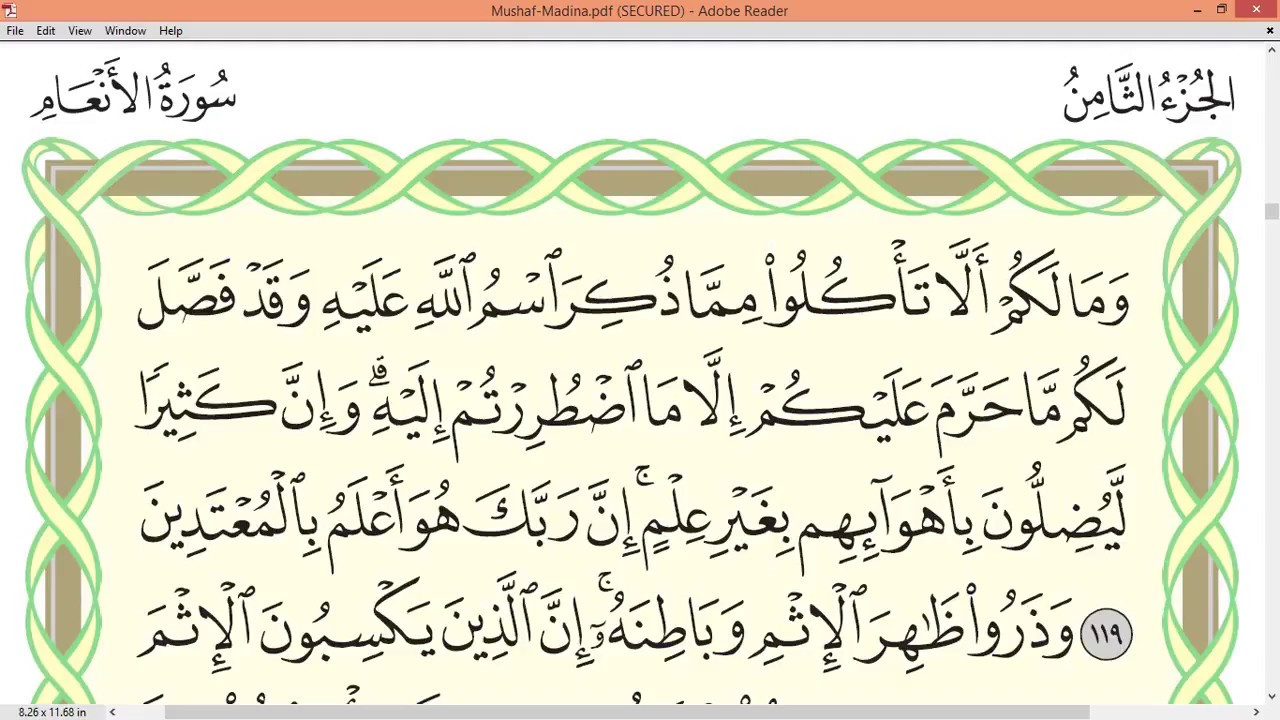 Mushaf-Madina.pdf (SECURED) - Adobe Reader
File Edit View Window Help
الجُزْءُ الثَّامِنُ
سُورَةُ الأَنْعَامِ
وَمَا لَكُمْ أَلَّا تَأْكُلُوا۟ مِمَّا ذُكِرَ ٱسْمُ ٱللَّهِ عَلَيْهِ وَقَدْ فَصَّلَ
لَكُم مَّا حَرَّمَ عَلَيْكُمْ إِلَّا مَا ٱضْطُرِرْتُمْ إِلَيْهِ ۗ وَإِنَّ كَثِيرًا
لَّيُضِلُّونَ بِأَهْوَآئِهِم بِغَيْرِ عِلْمٍ ۚ إِنَّ رَبَّكَ هُوَ أَعْلَمُ بِٱلْمُعْتَدِينَ
١١٩ وَذَرُوا۟ ظَٰهِرَ ٱلْإِثْمِ وَبَاطِنَهُۥٓ ۚ إِنَّ ٱلَّذِينَ يَكْسِبُونَ ٱلْإِثْمَ
8.26 x 11.68 in